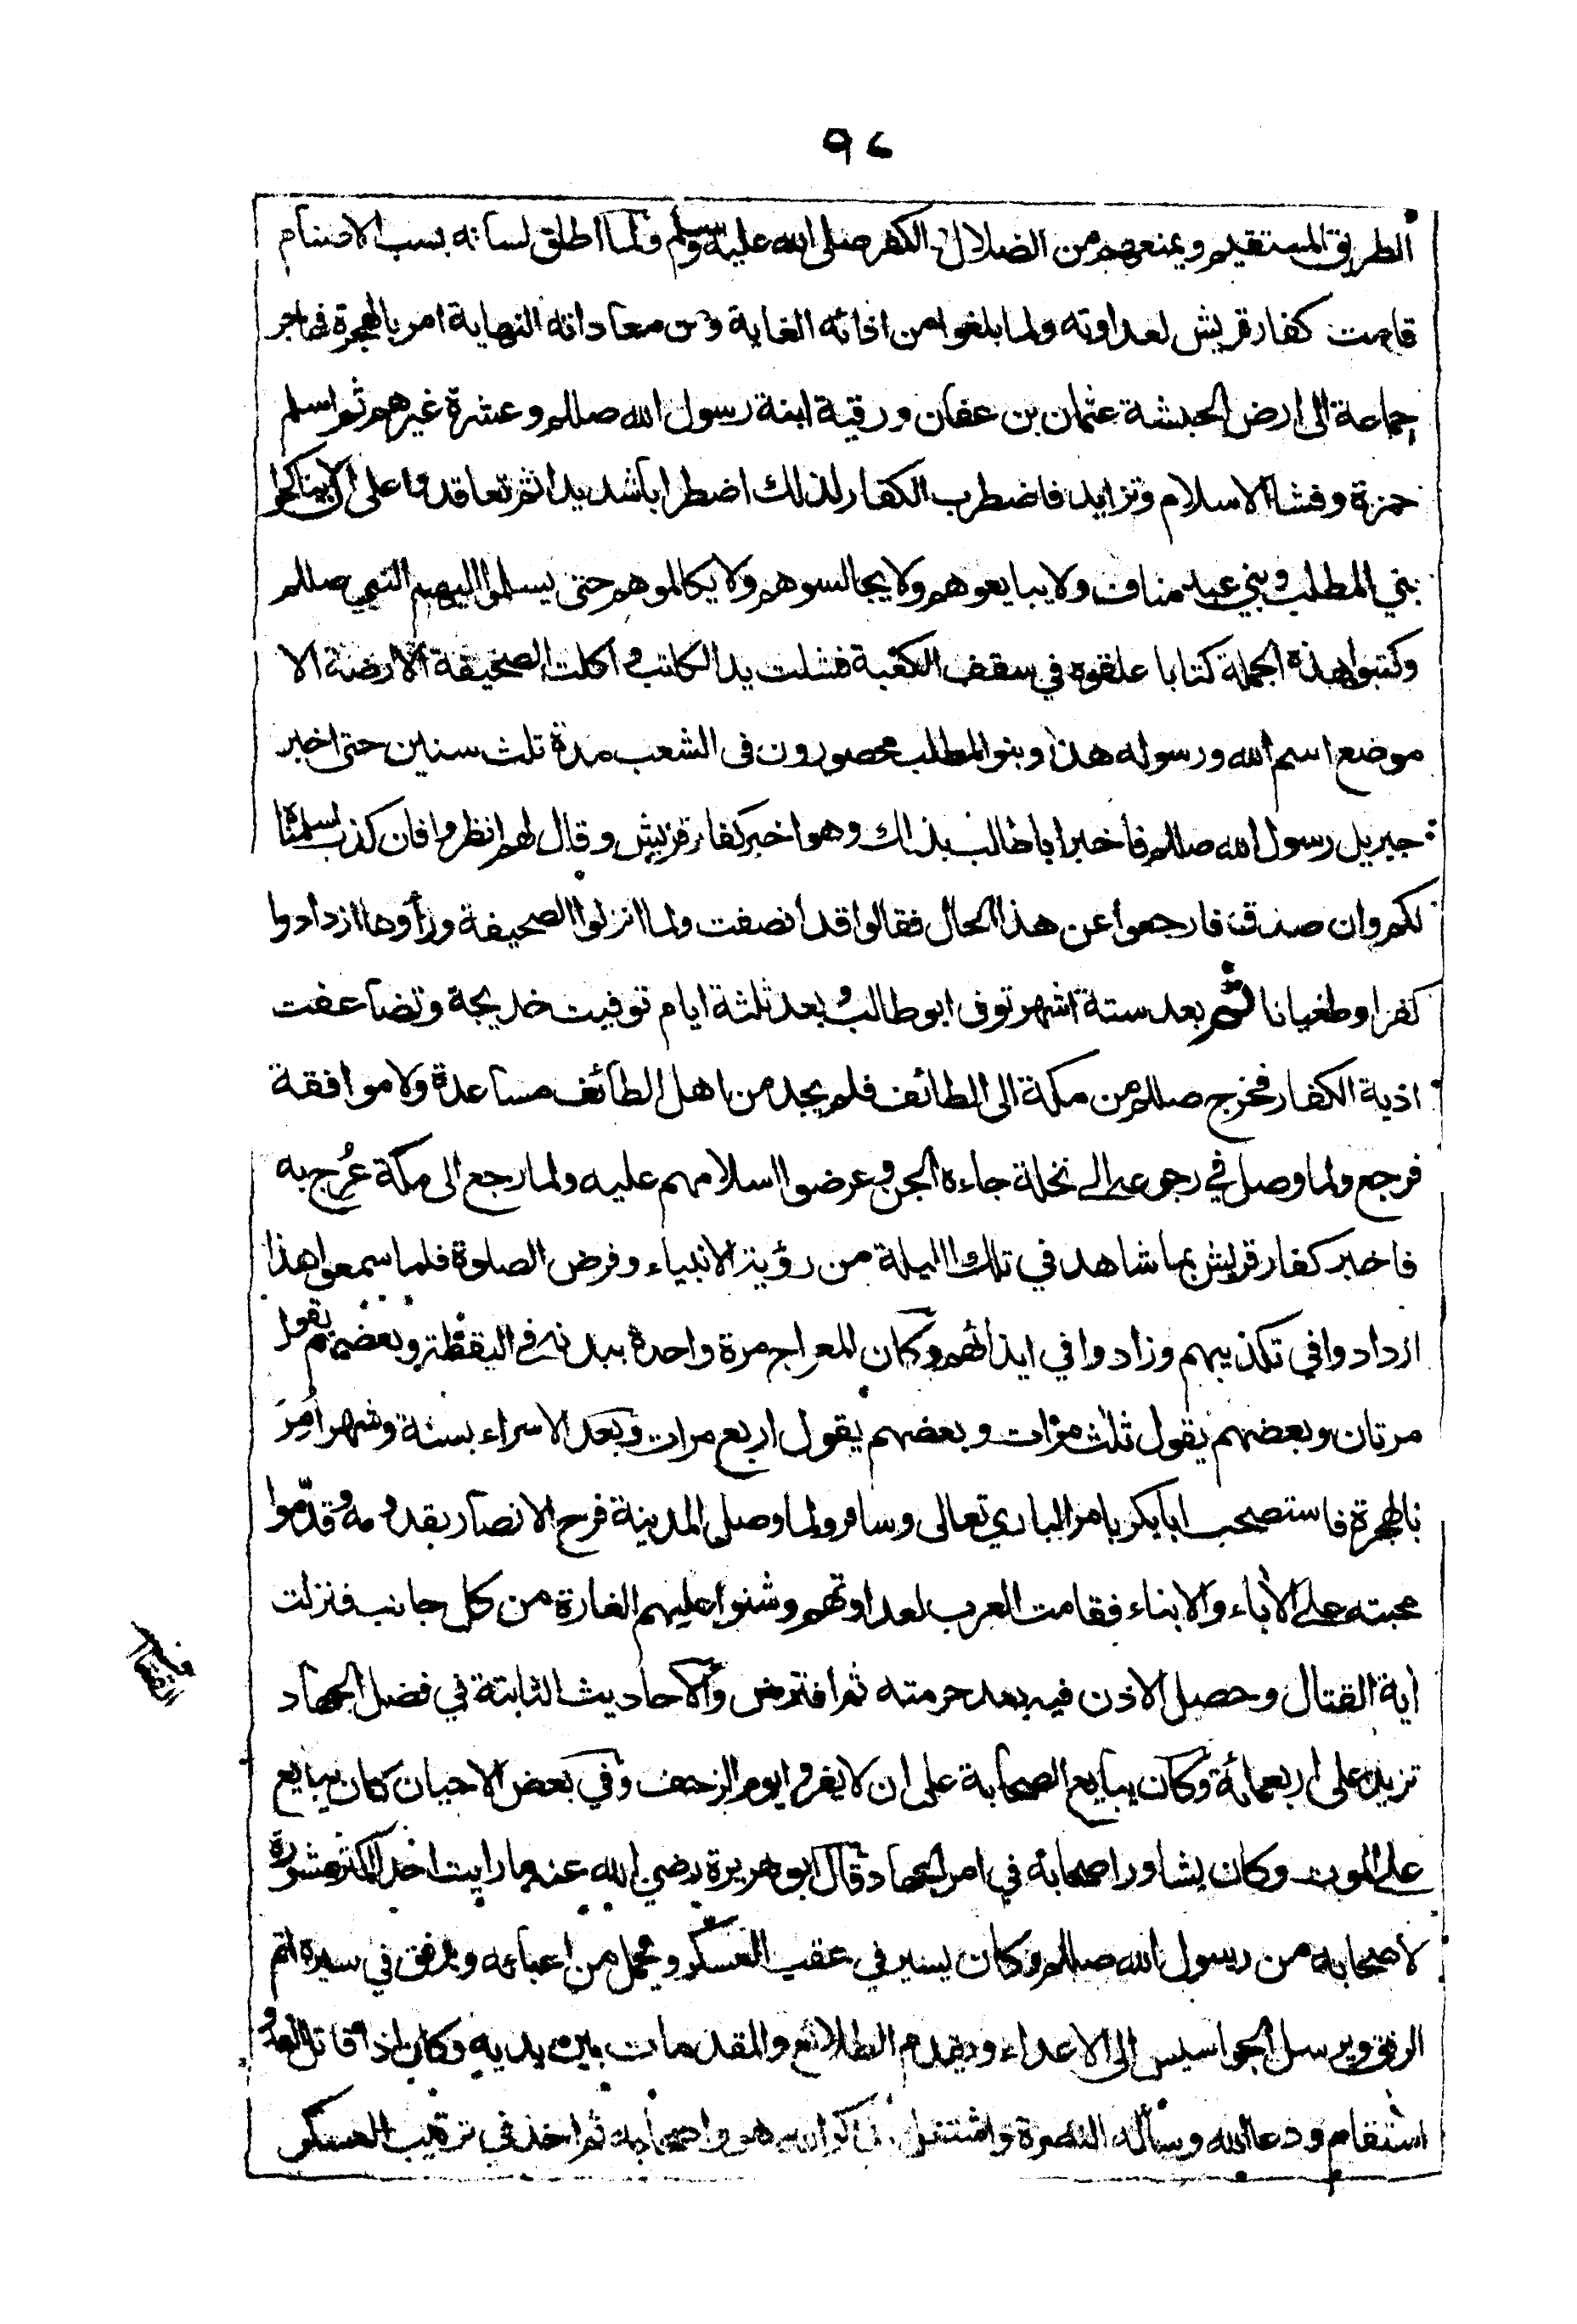 ٩٤
الطريق المستقيم ويمنعهم من الضلال الكفر صلى الله عليه وسلم فلما اطلق لسانه بسب الاصنام
قامت كفار قريش لعداوته ولما بلغوا من اذائه الغاية ومن معاداته النهاية امر بالهجرة فهاجر
جماعة الى ارض الحبشة عثمان بن عفان ورقية ابنة رسول الله صللم وعشرة غيرهم ثم اسلم
حمزة وفشا الاسلام وتزايد فاضطرب الكفار لذلك اضطرابا شديدا ثم تعاقدوا على ان لا يناكحوا
بني المطلب وبني عبد مناف ولا يبايعوهم ولا يجالسوهم ولا يكالموهم حتى يسلموا اليهم النبي صللم
وكتبوا هذه الجملة كتابا علقوه في سقف الكعبة فشلت يد الكاتب واكلت الصحيفة الارضة الا
موضع اسم الله ورسوله هذا وبنو المطلب محصورون في الشعب مدة ثلث سنين حتى اخبر
جبريل رسول الله صللم فاخبر ابا طالب بذاك وهو اخبر كفار قريش وقال لهم انظروا فان كذب سلمناه
لكم وان صدق فارجعوا عن هذا الحال فقالوا قد انصفت ولما انزلوا الصحيفة ورأوها ازدادوا
كفرا وطغيانا ثم بعد ستة اشهر توفى ابو طالب وبعد ثلثة ايام توفيت خديجة وتضاعفت
اذية الكفار فخرج صللم من مكة الى الطائف فلم يجد من اهل الطائف مساعدة ولا موافقة
فرجع ولما وصل في رجوعه الى نخلة جاءه الجن وعرضوا اسلامهم عليه ولما رجع الى مكة عُرج به
فاخبر كفار قريش بما شاهد في تلك الليلة من رؤية الانبياء وفرض الصلوة فلما سمعوا هذا
ازدادوا في تكذيبهم وزادوا في ايذائهم وكان المعراج مرة واحدة ببدنه في اليقظة وبعضهم يقول
مرتان وبعضهم يقول ثلث مرات وبعضهم يقول اربع مرات وبعد الاسراء بسنة وشهر أُمِرَ
بالهجرة فاستصحب ابا بكر بامر الباري تعالى وسافر ولما وصل المدينة فرح الانصار بقدومه وقدّموا
محبته على الاباء والابناء فقامت العرب لعداوتهم وشنوا عليهم الغارة من كل جانب فنزلت
اية القتال وحصل الاذن فيه بعد حرمته ثم افترض والاحاديث الثابتة في فضل الجهاد
تزيد على اربعمائة وكان يبايع الصحابة على ان لا يفروا يوم الزحف وفي بعض الاحيان كان يبايع
على الموت وكان يشاور اصحابه في امر الجهاد قال ابو هريرة رضي الله عنه ما رايت احدا اكثر مشورة
لاصحابه من رسول الله صللم وكان يسير في عقب العسكر ويحمل من اعيائه ويرفق في سيره اتم
الرفق ويرسل الجواسيس الى الاعداء ويقدم الطلائع والمقدمات بين يديه وكان اذا قاتل العدو
استقام ودعا الله وسأله النصرة واشتغل هو واصحابه ثم اخذ في ترتيب العسكر